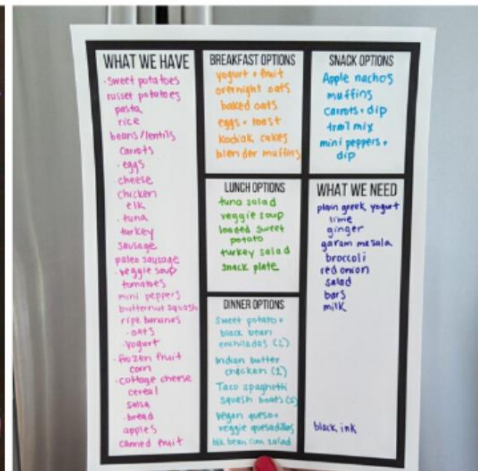 WHAT WE HAVE
·sweet potatoes
russet potatoes
pasta
rice
beans/lentils
carrots
·eggs
cheese
chicken
elk
·tuna
turkey
sausage
paleo sausage
·veggie soup
tomatoes
mini peppers
butternut squash
ripe bananas
·oats
·yogurt
·frozen fruit
corn
·cottage cheese
cereal
salsa
·bread
apples
canned fruit
BREAKFAST OPTIONS
yogurt + fruit
overnight oats
baked oats
eggs + toast
Kodiak cakes
blender muffins
LUNCH OPTIONS
tuna salad
veggie soup
loaded sweet
potato
turkey salad
snack plate
DINNER OPTIONS
Sweet potato +
black bean
enchiladas (2)
Indian butter
chicken (2)
Taco spaghetti
squash boats (2)
vegan queso +
veggie quesadillas
blk bean corn salad
SNACK OPTIONS
Apple nachos
muffins
carrots + dip
trail mix
mini peppers +
dip
WHAT WE NEED
plain greek yogurt
lime
ginger
garam masala
broccoli
red onion
salad
bars
milk
black ink